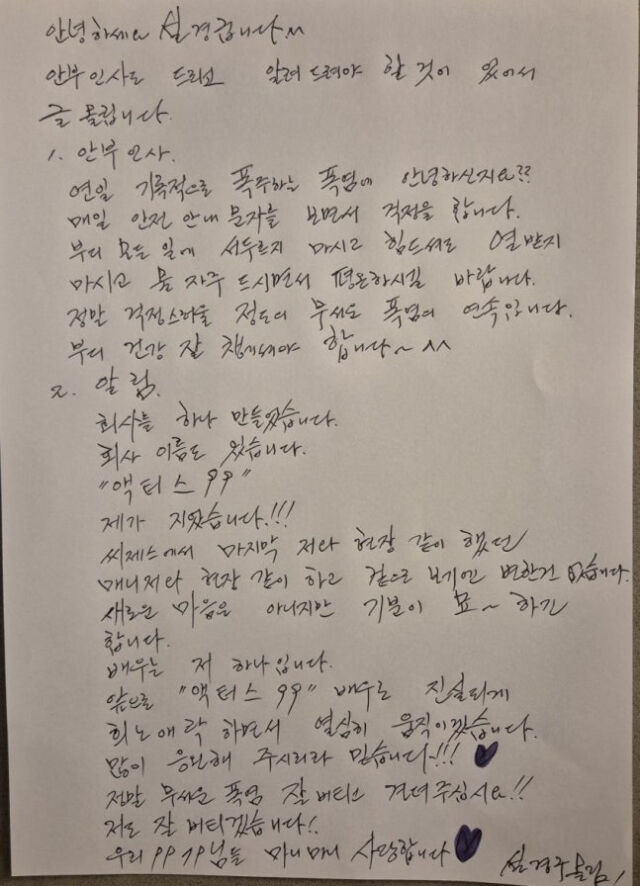 안녕하세요 설경굽니다^^
안부인사도 드리고 알려드려야 할 것이 있어서
글 올립니다.
1. 안부인사.
연일 기록적으로 폭주하는 폭염에 안녕하신지요??
매일 안전 안내 문자를 보면서 걱정을 합니다.
부디 모든 일에 서두르지 마시고 힘드셔도 열받지
마시고 물 자주 드시면서 평온하시길 바랍니다.
정말 걱정스러울 정도의 무서운 폭염의 연속입니다.
부디 건강 잘 챙기셔야 합니다~^^
2. 알림.
회사를 하나 만들었습니다.
회사 이름도 있습니다.
"액터스99"
제가 지었습니다!!!
씨제스에서 마지막 저와 현장 같이 했던
매니저와 현장 같이 하고 겉으로 보기엔 변한건 없습니다.
새로운 마음은 아니지만 기분이 묘~하긴
합니다.
배우는 저 하나입니다.
앞으로 "액터스99" 배우로 진실되게
희노애락 하면서 열심히 움직이겠습니다.
많이 응원해 주시리라 믿습니다~!!! 💜
정말 무서운 폭염 잘 버티고 견뎌주십시요!!
저도 잘 버티겠습니다!.
우리 99님들 마니마니 사랑합니다💜
설경구 올림!